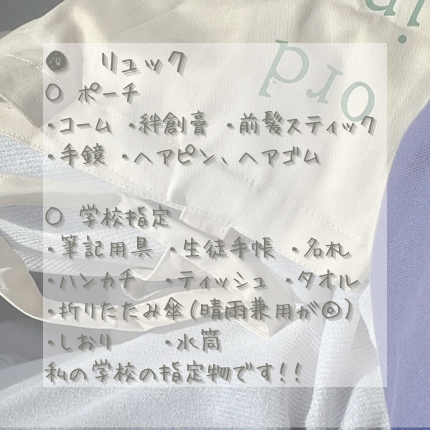 ● リュック
○ ポーチ
・コーム ・絆創膏 ・前髪スティック
・手鏡 ・ヘアピン、ヘアゴム
○ 学校指定
・筆記用具 ・生徒手帳 ・名札
・ハンカチ ・ティッシュ ・タオル
・折りたたみ傘(晴雨兼用が◎)
・しおり ・水筒
私の学校の指定物です!!